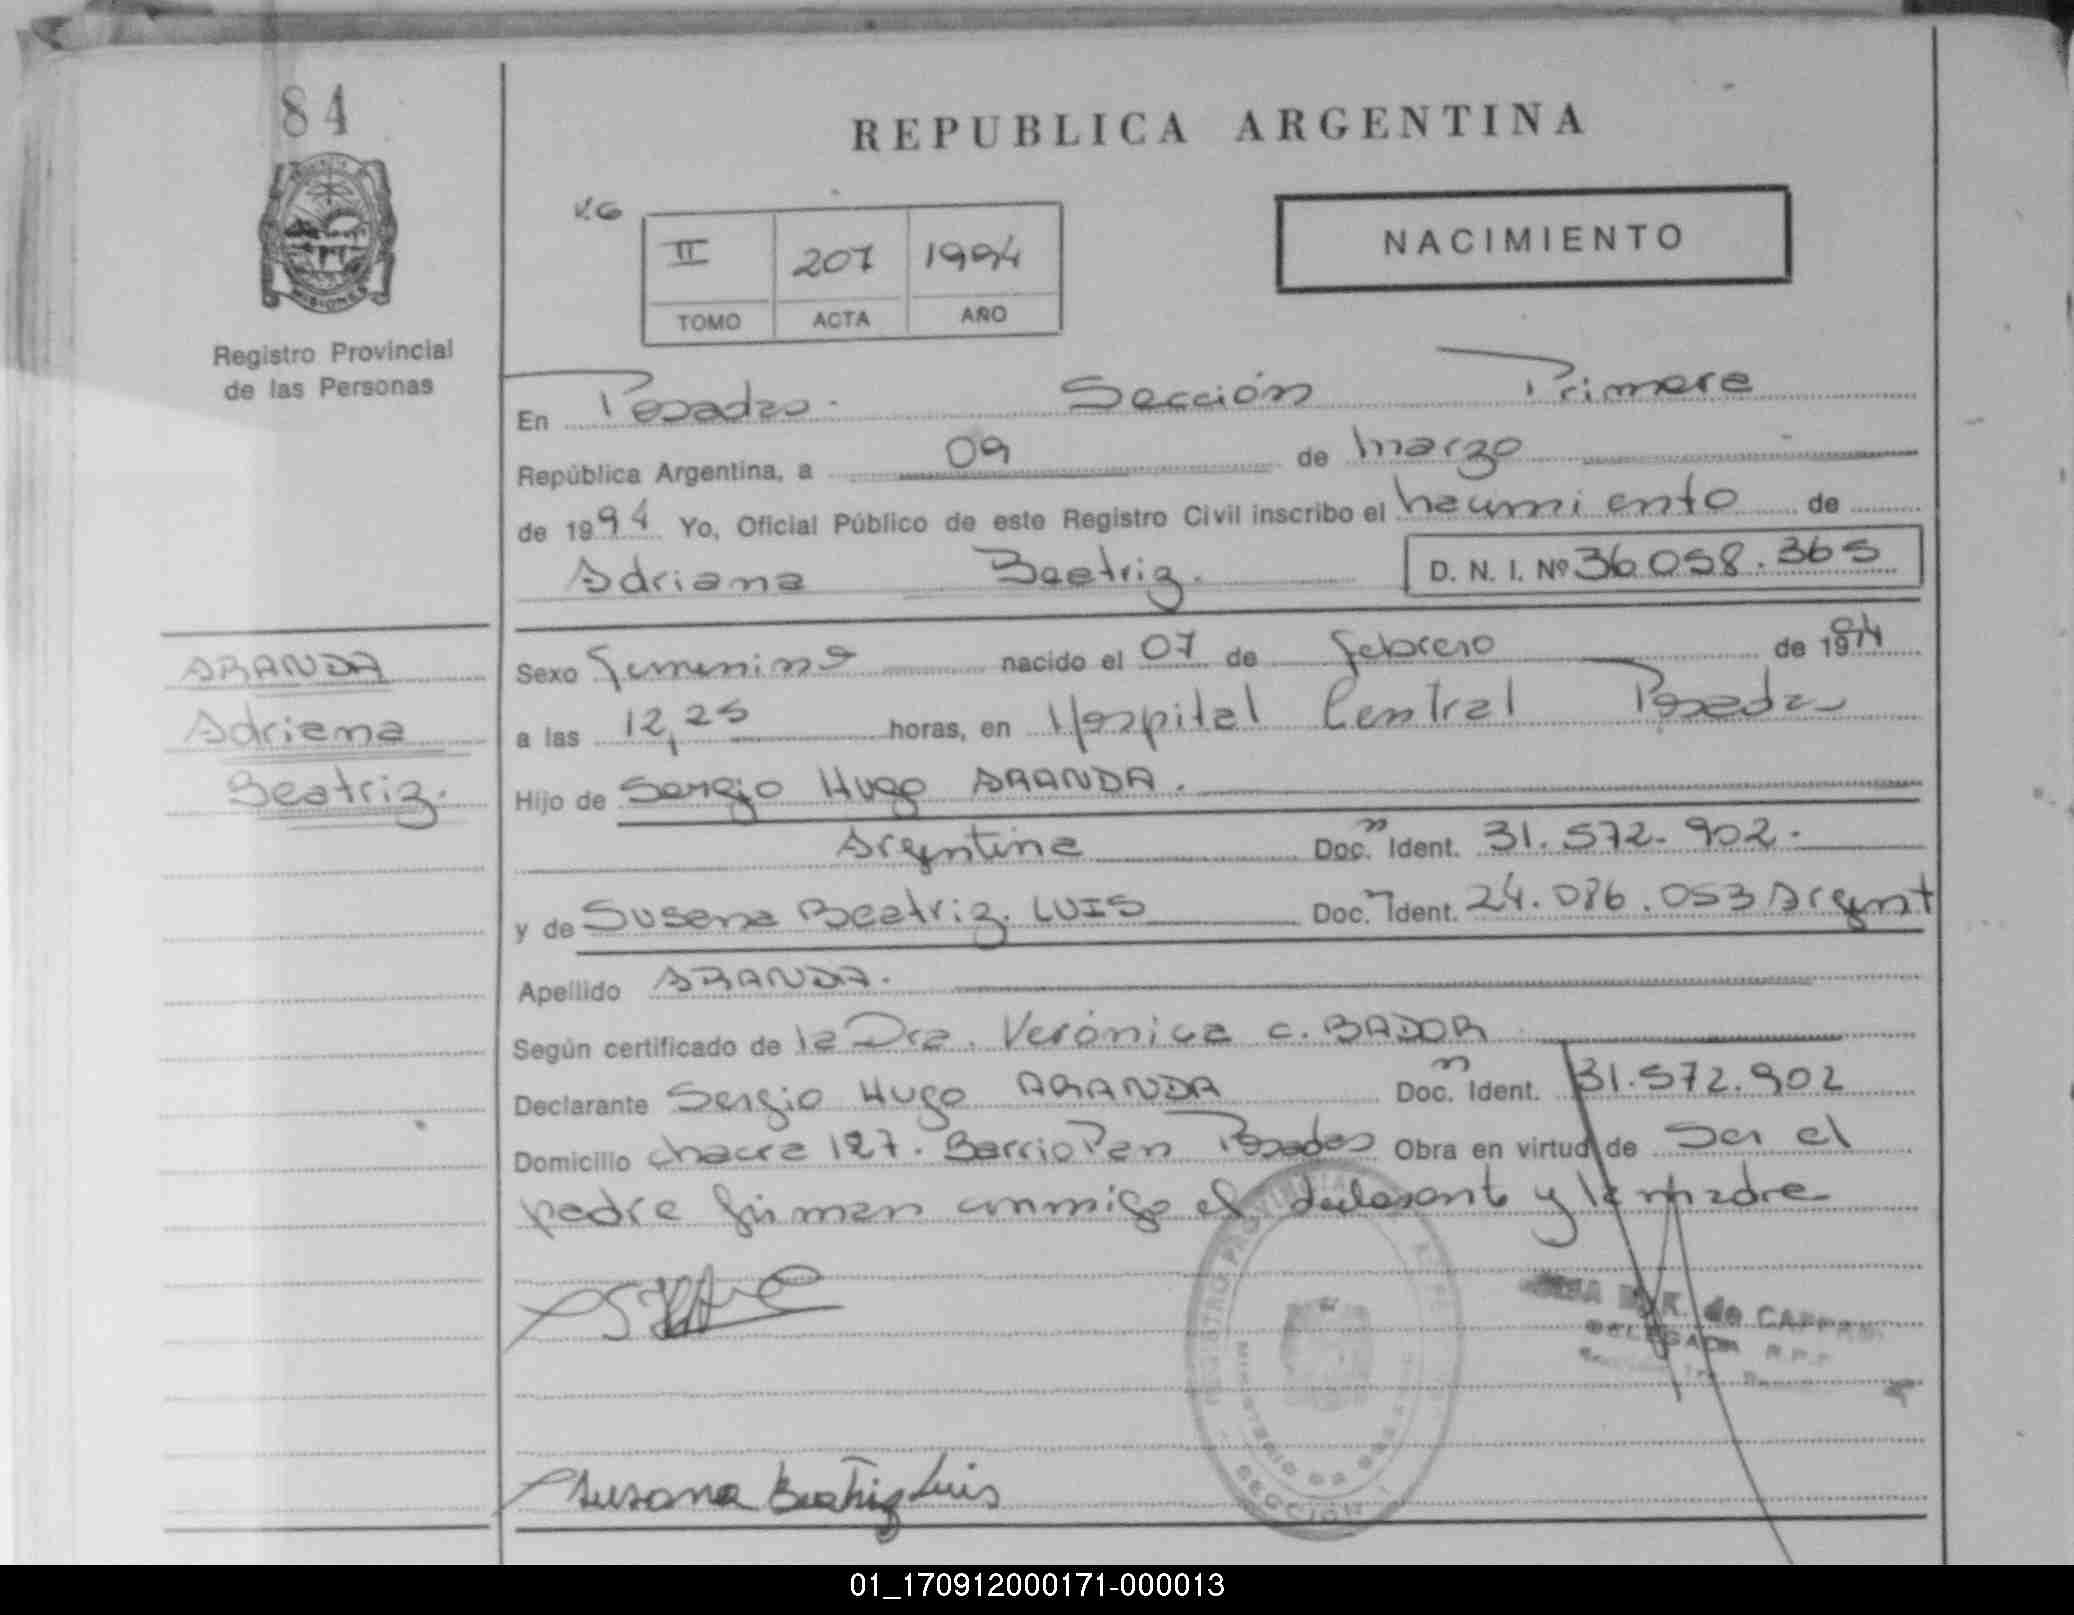 84
REPUBLICA ARGENTINA
V.G
II 207 1994
TOMO ACTA AÑO
NACIMIENTO
MISIONES
Registro Provincial
de las Personas
En Posadas. Sección Primera
República Argentina, a 09 de marzo
de 1994 Yo, Oficial Público de este Registro Civil inscribo el nacimiento de
Adriana Beatriz. D. N. I. Nº 36.058.365
ARANDA
Adriana
Beatriz.
Sexo femenino nacido el 07 de febrero de 1994
a las 12,25 horas, en Hospital Central Posadas
Hijo de Sergio Hugo ARANDA.
Argentina Doc. n Ident. 31.572.902.
y de Susana Beatriz. LUIS Doc. n Ident. 24.086.053 Argent
Apellido ARANDA.
Según certificado de la Dra. Verónica C. BADOR
Declarante Sergio Hugo ARANDA Doc. n Ident. 31.572.902
Domicilio chacra 127. Barrio Pan Posadas Obra en virtud de Ser el
padre firman conmigo el declarante y la madre
REGISTRO PROVINCIAL
de CAPPA
DELEGADA R.P.P
SECCION
Susana Beatriz Luis
01_170912000171-000013